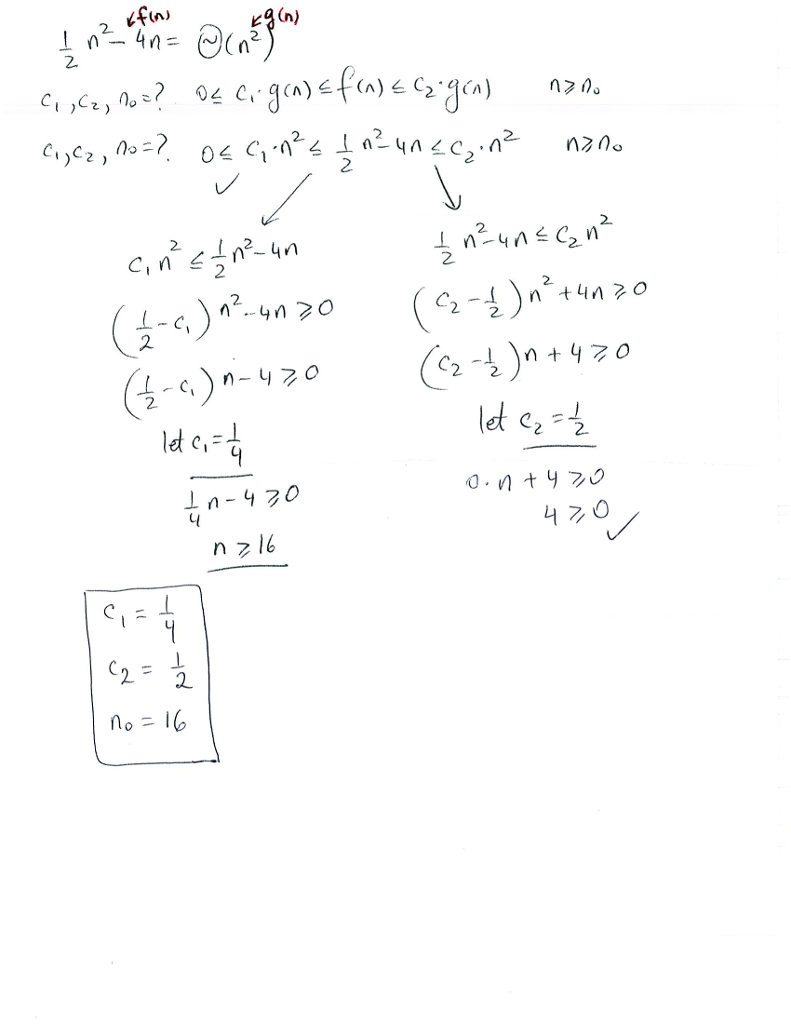 ↙f(n) ↙g(n)
1/2 n² - 4n = Θ(n²)
c₁, c₂, n₀ = ? 0 ≤ c₁·g(n) ≤ f(n) ≤ c₂·g(n) n ≥ n₀
c₁, c₂, n₀ = ? 0 ≤ c₁·n² ≤ 1/2 n² - 4n ≤ c₂·n² n ≥ n₀
✓ ↙ ↘
c₁n² ≤ 1/2 n² - 4n
(1/2 - c₁) n² - 4n ≥ 0
(1/2 - c₁) n - 4 ≥ 0
let c₁ = 1/4
1/4 n - 4 ≥ 0
n ≥ 16
1/2 n² - 4n ≤ c₂n²
(c₂ - 1/2) n² + 4n ≥ 0
(c₂ - 1/2) n + 4 ≥ 0
let c₂ = 1/2
0·n + 4 ≥ 0
4 ≥ 0 ✓
c₁ = 1/4
c₂ = 1/2
n₀ = 16